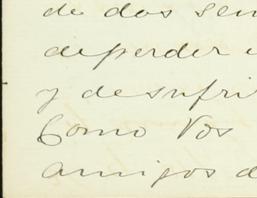 de dos sen
deperder
y de sufri
Como Vos
amigos d